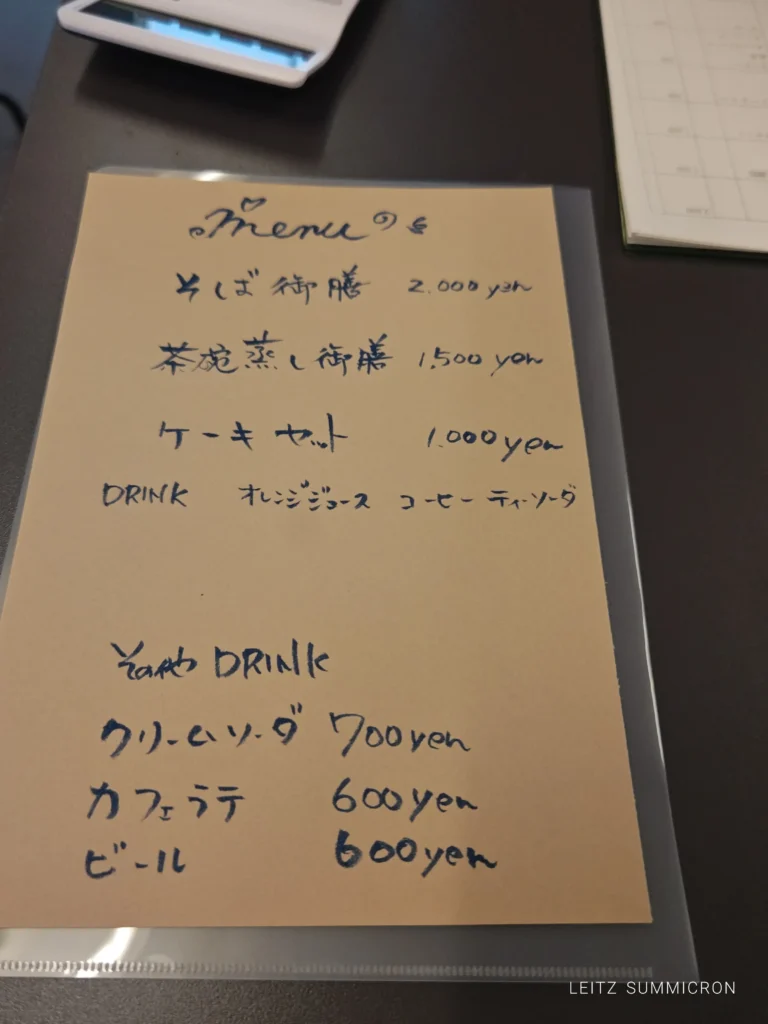 Menu
そば御膳 2.000 yen
茶碗蒸し御膳 1,500 yen
ケーキセット 1.000 yen
DRINK オレンジジュース コーヒー ティーソーダ
その他 DRINK
クリームソーダ 700 yen
カフェラテ 600 yen
ビール 600 yen
LEITZ SUMMICRON